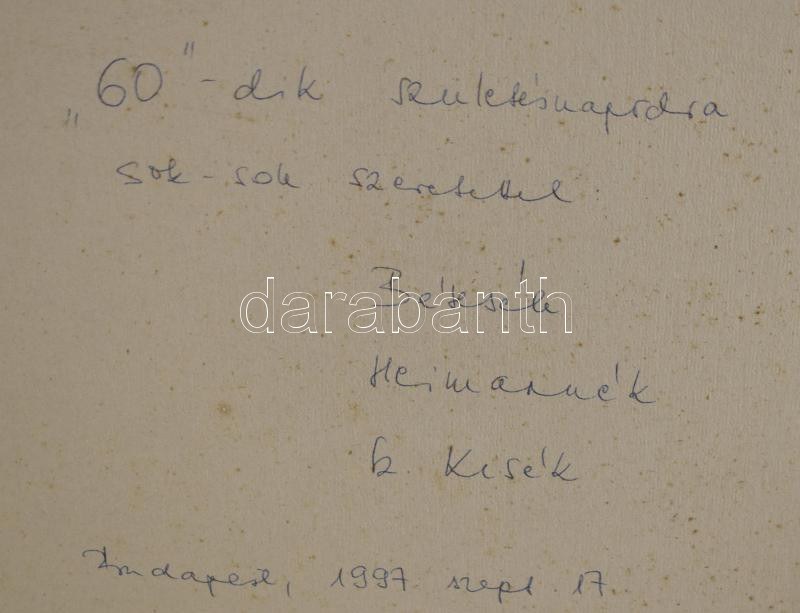 „60"-dik születésnapodra
sok-sok szeretettel
darabanth
Heimannék
k. Kisék
Budapest, 1997 szept. 17